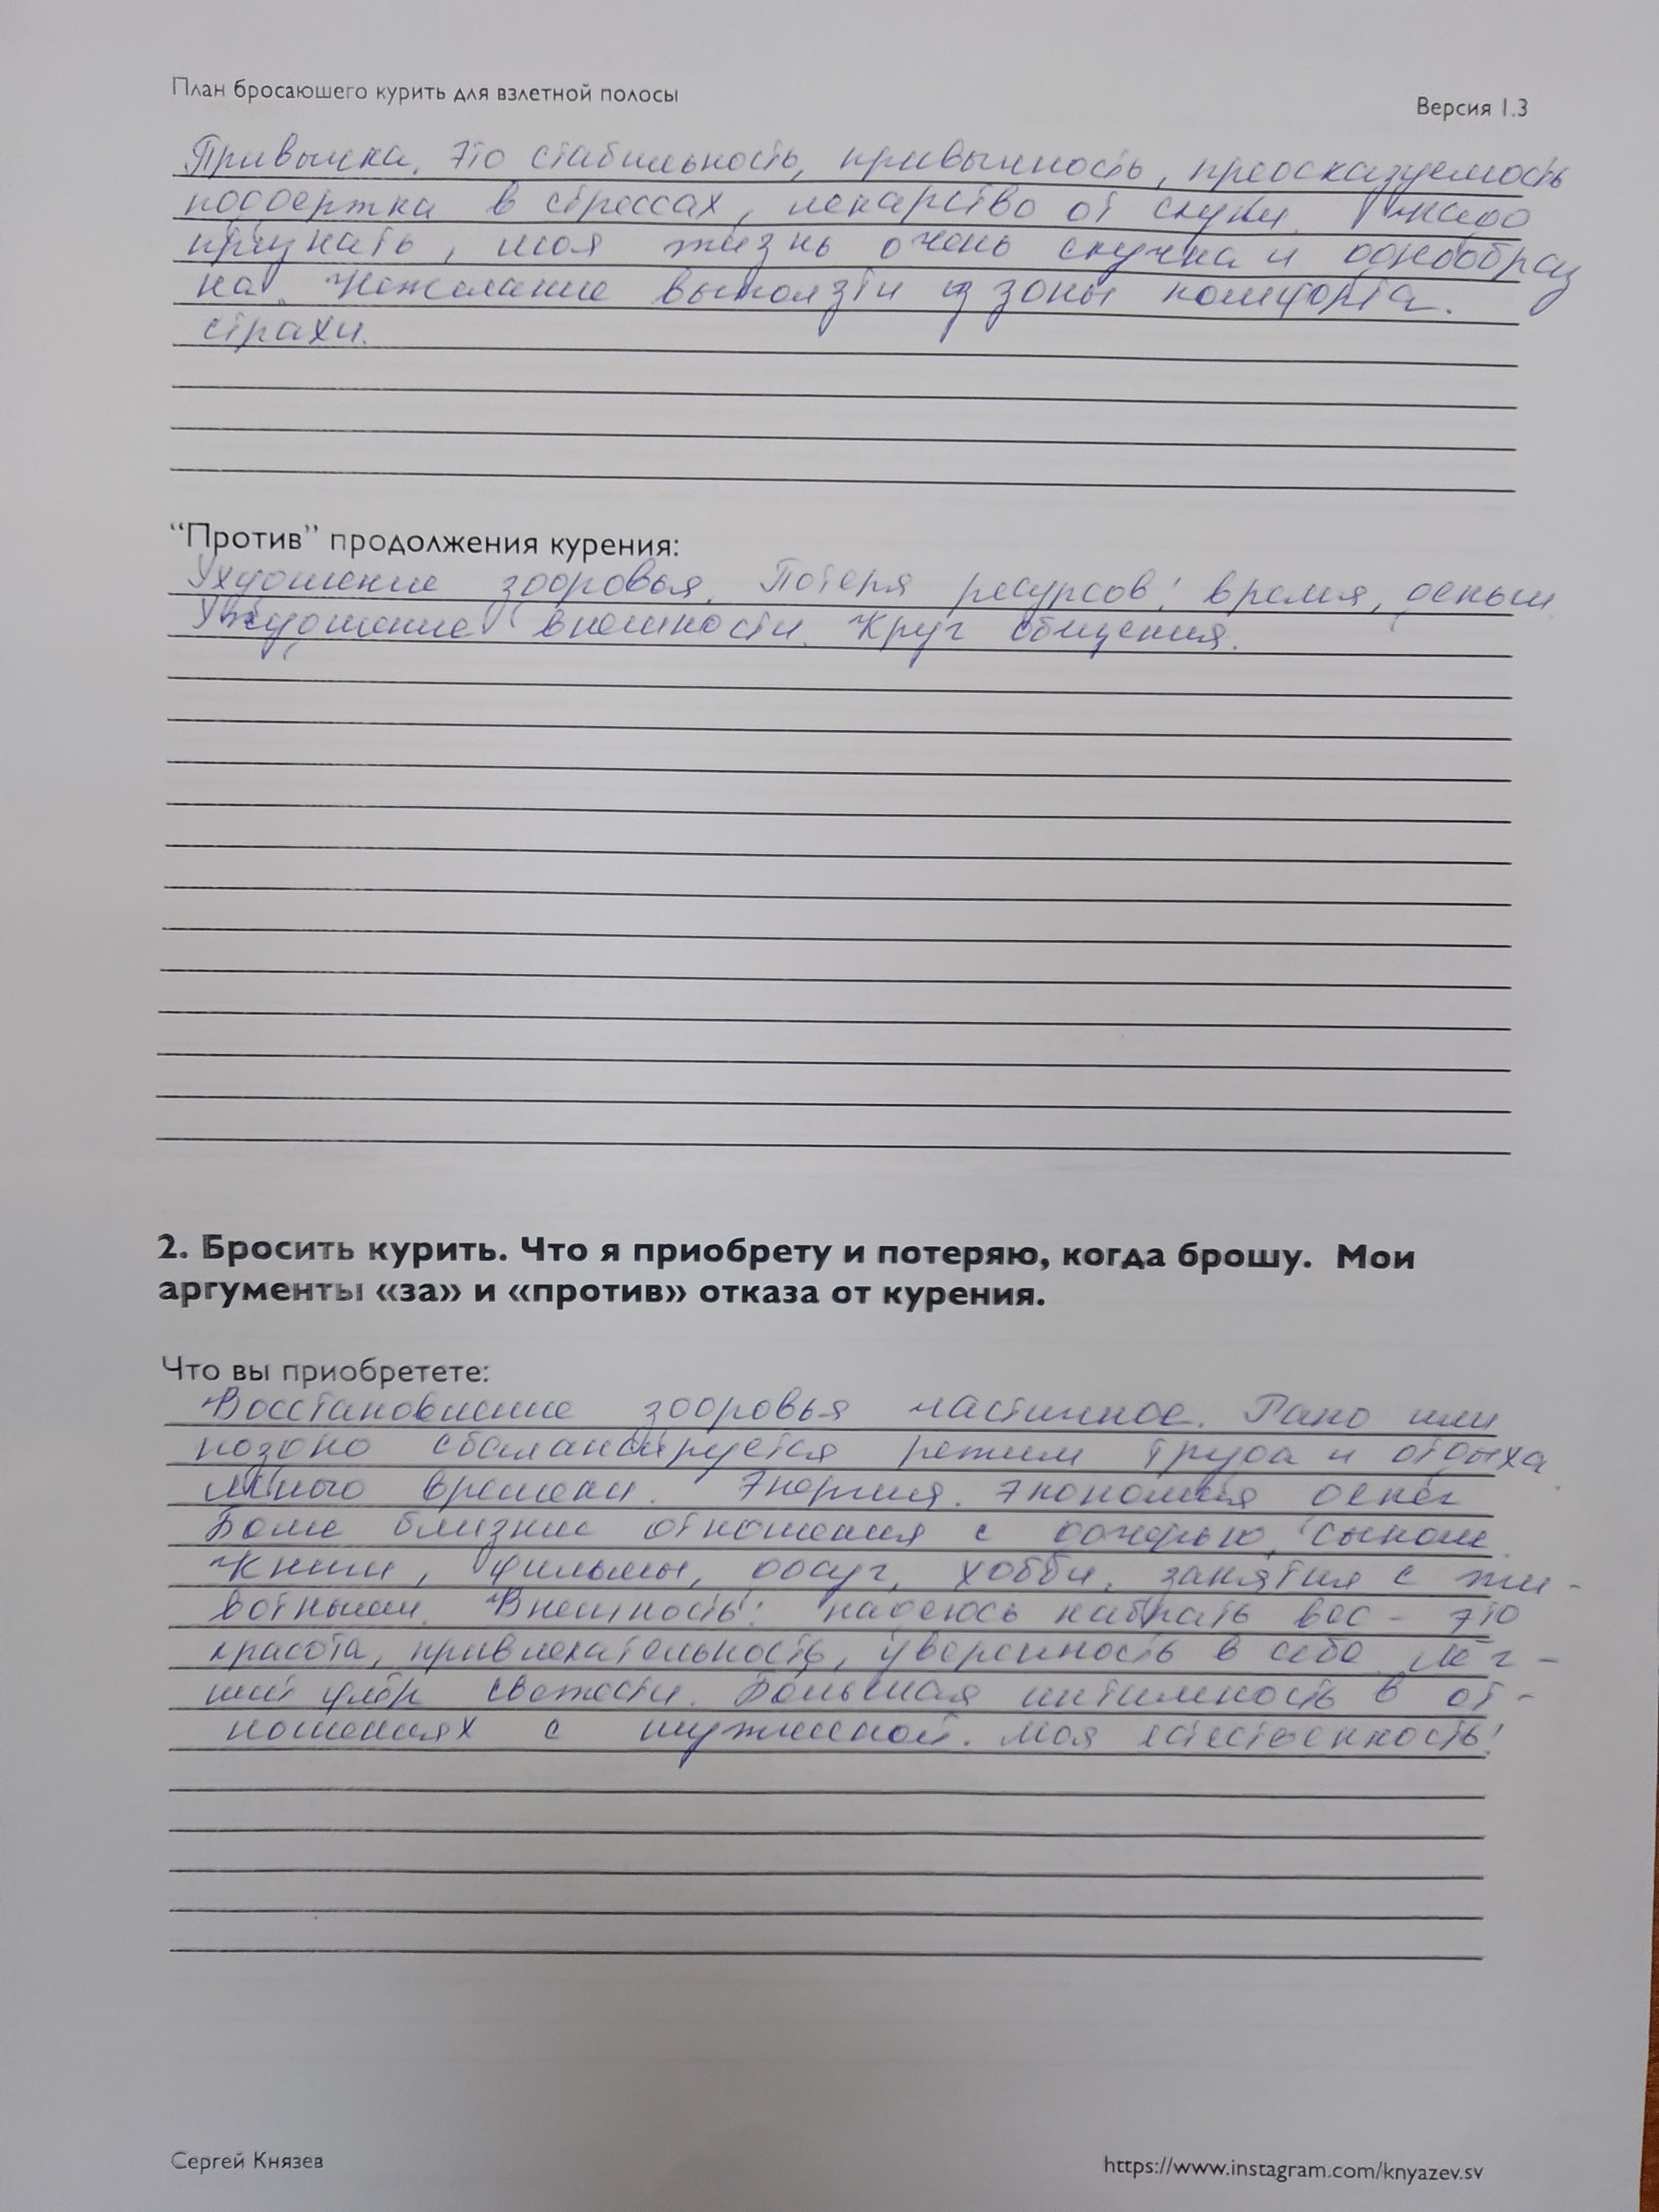 План бросаюшего курить для взлетной полосы
Версия 1.3
Привычка, это стабильность, привычность, предсказуемость
поддержка в стрессах, лекарство от скуки. надо
признать, моя жизнь очень скучна и однообраз
на. Нежелание выползти из зоны комфорта.
страхи.
“Против” продолжения курения:
Ухудшение здоровья. Потеря ресурсов: время, деньги
Ухудшение внешности. Круг общения.
2. Бросить курить. Что я приобрету и потеряю, когда брошу. Мои
аргументы «за» и «против» отказа от курения.
Что вы приобретете:
Восстановление здоровья частичное. Рано или
поздно сбалансируется режим труда и отдыха.
Много времени. Энергия. Экономия денег
Более близкие отношения с дочерью, сыном.
Книги, фильмы, досуг, хобби, занятия с жи-
вотными. Внешность: надеюсь набрать вес - это
красота, привлекательность, уверенность в себе. Лёг-
кий флёр свежести. Большая интимность в от-
ношениях с мужчиной. Моя естественность!
Сергей Князев
https://www.instagram.com/knyazev.sv